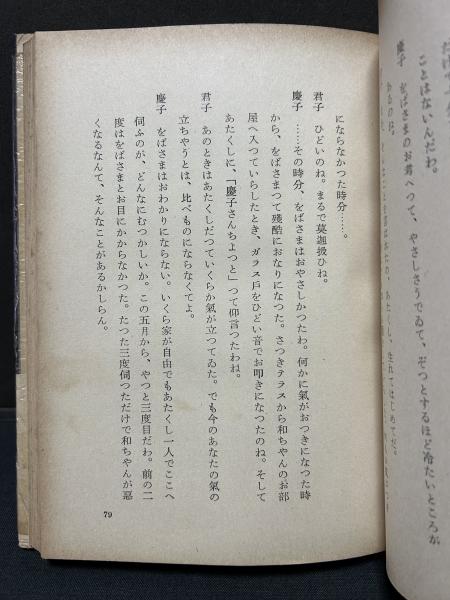 ことはないんだわ。
慶子　をばさまのお君へつて、やさしさうでゐて、ぞつとするほど冷たいところが
にならなかつた時分……。
君子　ひどいのね。まるで莫迦扱ひね。
慶子　……その時分、をばさまはおやさしかつたわ。何かに氣がおつきになつた時
から、をばさまつて殘酷におなりになつた。さつきテラスから和ちやんのお部
屋へ入つていらしたとき、ガラス戸をひどい音でお叩きになつたのね。そして
あたくしに、「慶子さんちよつと」つて仰言つたわね。
君子　あのときはあたくしだつていくらか氣が立つてゐた。でも今のあなたの氣の
立ちやうとは、比べものにならなくてよ。
慶子　をばさまはおわかりにならない。いくら家が自由でもあたくし一人でここへ
伺ふのが、どんなにむつかしいか。この五月から、やつと三度目だわ。前の二
度はをばさまとお目にかからなかつた。たつた三度伺つただけで和ちやんが惡
くなるなんて、そんなことがあるかしらん。
79